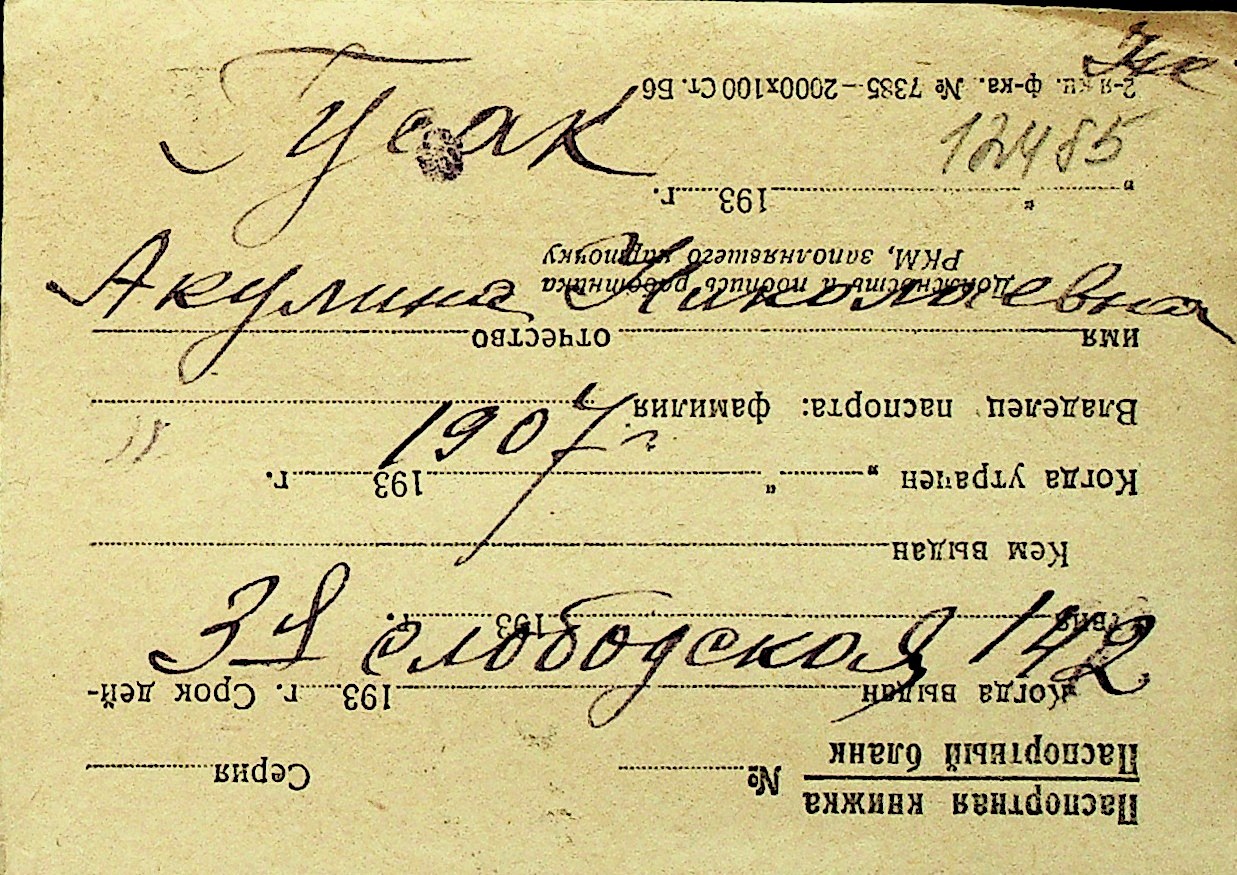 Гусак
Акулина Николаевна
1907 г
3-я слободская 142
12485
Паспортная книжка
Паспортный бланк
№ Серия
Когда выдан 193 г. Срок дей-
ствия 193 г.
Кем выдан
Когда утрачен „ “ 193 г.
Владелец паспорта: фамилия
имя отчество
Должность и подпись работника
РКМ, заполнявшего карточку
„ “ 193 г.
2-я кн. ф-ка. № 7385—2000х100 Ст. Б6